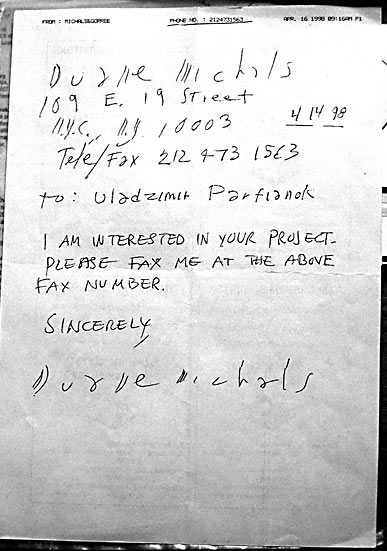 FROM : MICHALS&GORREE PHONE NO. : 2124731563 APR. 16 1998 09:16AM P1
Duane Michals
109 E. 19 Street
N.Y.C., N.Y. 10003
4 14 98
Tele/Fax 212 473 1563
to: Uladzimir Parfianok
I AM INTERESTED IN YOUR PROJECT.
PLEASE FAX ME AT THE ABOVE
FAX NUMBER.
SINCERELY
Duane Michals